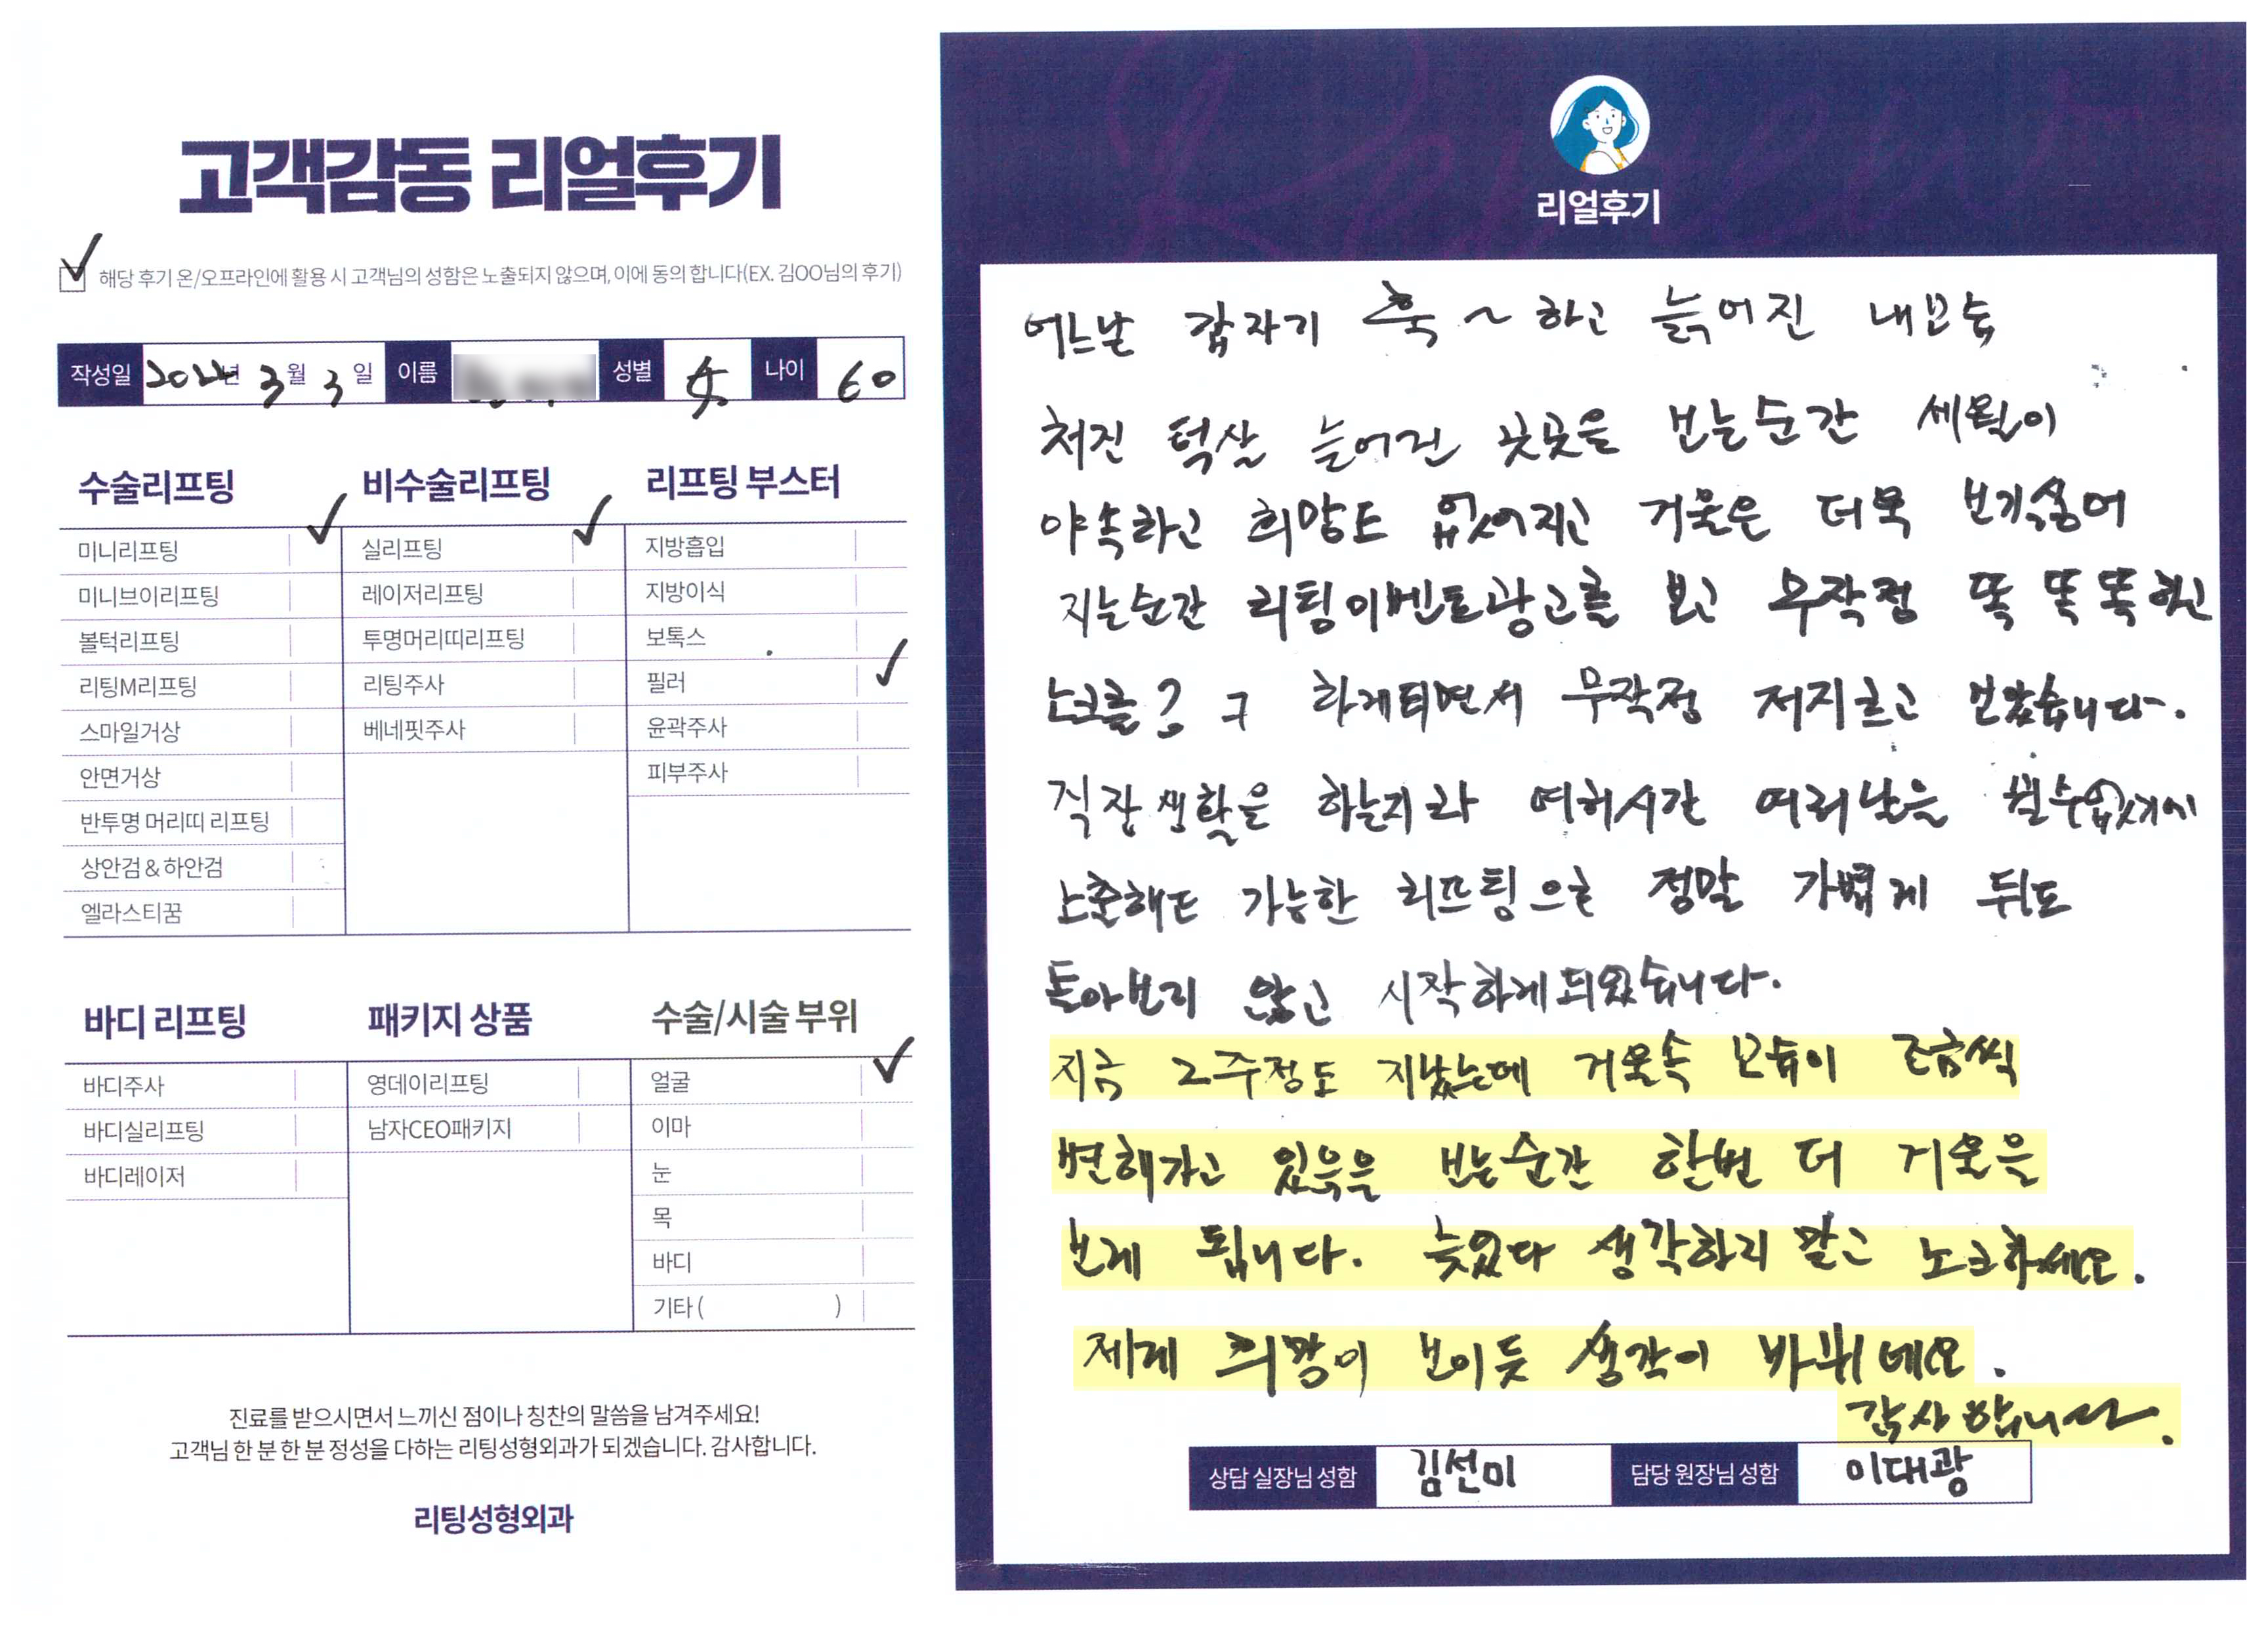 고객감동 리얼후기
해당 후기 온/오프라인에 활용 시 고객님의 성함은 노출되지 않으며, 이에 동의 합니다(EX. 김OO님의 후기)
작성일 2024년 3월 3일 이름 성별 女 나이 60
수술리프팅
미니리프팅
미니브이리프팅
볼턱리프팅
리팅M리프팅
스마일거상
안면거상
반투명 머리띠 리프팅
상안검 & 하안검
엘라스티꿈
비수술리프팅
실리프팅
레이저리프팅
투명머리띠리프팅
리팅주사
베네핏주사
리프팅 부스터
지방흡입
지방이식
보톡스
필러
윤곽주사
피부주사
바디 리프팅
바디주사
바디실리프팅
바디레이저
패키지 상품
영데이리프팅
남자CEO패키지
수술/시술 부위
얼굴
이마
눈
목
바디
기타 ( )
진료를 받으시면서 느끼신 점이나 칭찬의 말씀을 남겨주세요!
고객님 한 분 한 분 정성을 다하는 리팅성형외과가 되겠습니다. 감사합니다.
리팅성형외과
리얼후기
어느날 갑자기 훅~하고 늙어진 내모습
처진 턱살 늘어진 곳곳을 보는순간 세월이
야속하고 희망도 없어지고 거울은 더욱 보기싫어
지는순간 리팅이벤트광고를 보고 무작정 똑 똑 똑 하고
노크를 하게되면서 무작정 저지르고 보았습니다.
직장생활을 하는지라 여러시간 여러날을 뺄수없기에
노출해도 가능한 리프팅으로 정말 가볍게 뒤도
돌아보지 않고 시작하게되었습니다.
지금 2주정도 지났는데 거울속 모습이 조금씩
변해가고 있음을 보는순간 한번 더 거울을
보게 됩니다. 늦었다 생각하지 말고 노크하세요.
제게 희망이 보이듯 생각이 바뀌네요.
감사합니다.
상담 실장님 성함 김선미 담당 원장님 성함 이대광